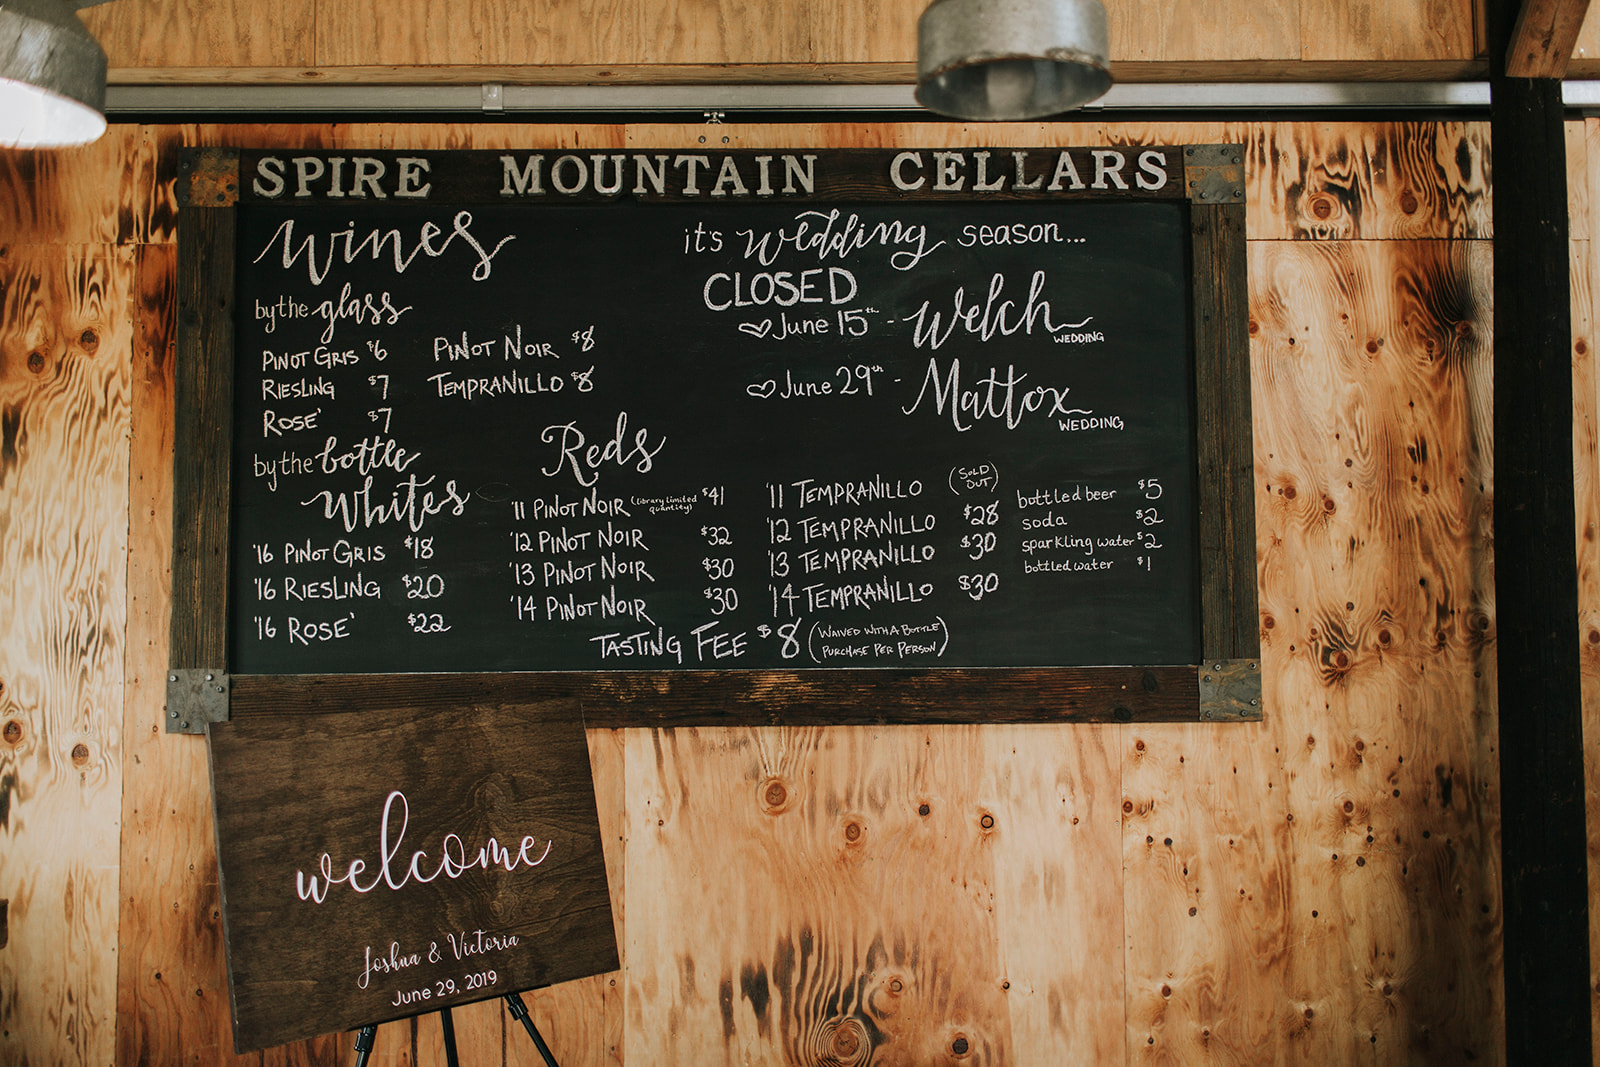 SPIRE MOUNTAIN CELLARS
wines
by the glass
PINOT GRIS $6
RIESLING $7
ROSE' $7
PINOT NOIR $8
TEMPRANILLO $8
it's wedding season...
CLOSED
June 15th - Welch WEDDING
June 29th - Mattox WEDDING
by the bottle
Whites
'16 PINOT GRIS $18
'16 RIESLING $20
'16 ROSE' $22
Reds
'11 PINOT NOIR (library limited quantity) $41
'12 PINOT NOIR $32
'13 PINOT NOIR $30
'14 PINOT NOIR $30
'11 TEMPRANILLO (SOLD OUT)
'12 TEMPRANILLO $28
'13 TEMPRANILLO $30
'14 TEMPRANILLO $30
bottled beer $5
soda $2
sparkling water $2
bottled water $1
TASTING FEE $8 (WAIVED WITH A BOTTLE PURCHASE PER PERSON)
welcome
Joshua & Victoria
June 29, 2019